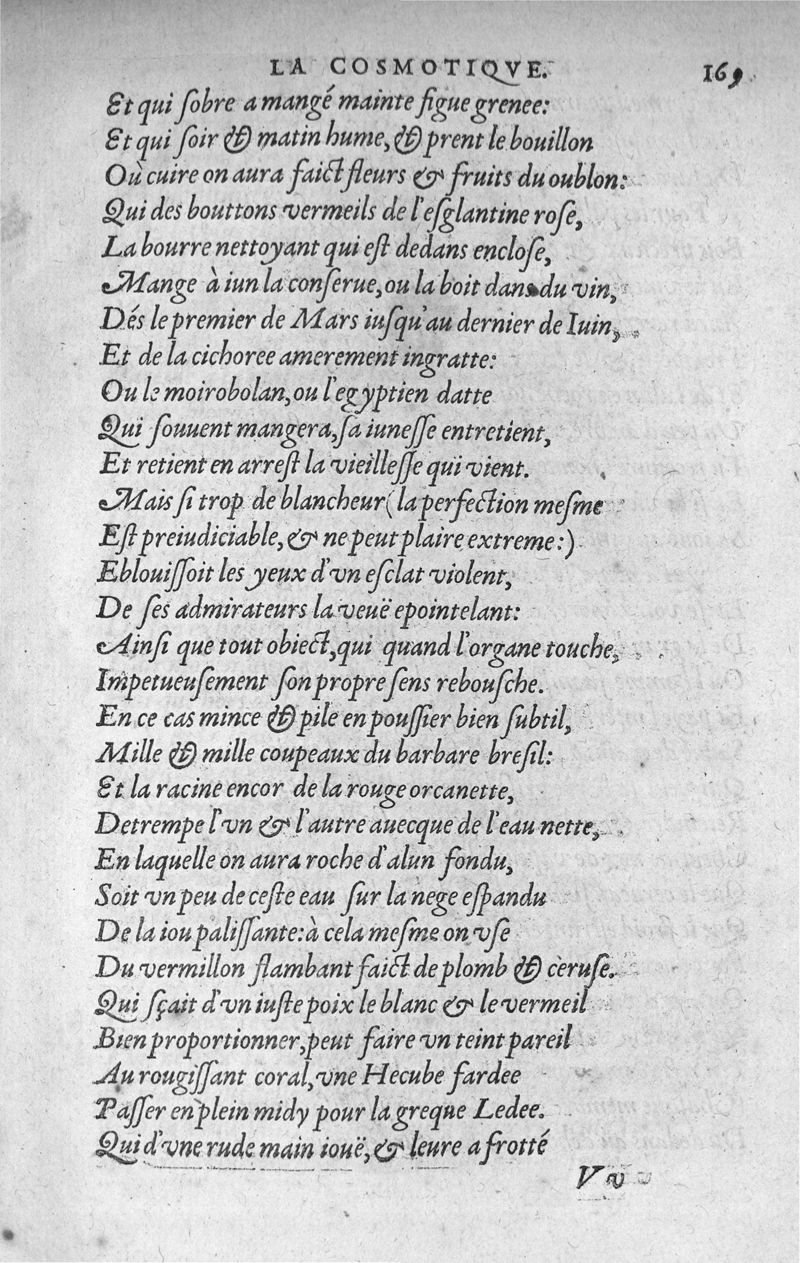 LA COSMOTIQVE. 169
Et qui ſobre a mangé mainte figue grenee:
Et qui ſoir & matin hume, & prent le bouillon
Où cuire on aura faict fleurs & fruits du oublon:
Qui des bouttons vermeils de l'eſglantine roſe,
La bourre nettoyant qui eſt dedans encloſe,
Mange à iun la conſerue, ou la boit dans du vin,
Dés le premier de Mars iuſqu'au dernier de Iuin,
Et de la cichoree amerement ingratte:
Ou le moirobolan, ou l'egyptien datte
Qui ſouuent mangera, ſa iuneſſe entretient,
Et retient en arreſt la vieilleſſe qui vient.
Mais ſi trop de blancheur (la perfection meſme
Eſt preiudiciable, & ne peut plaire extreme:)
Eblouiſſoit les yeux d'vn eſclat violent,
De ſes admirateurs la veuë epointelant:
Ainſi que tout obiect, qui quand l'organe touche,
Impetueuſement ſon propre ſens rebouſche.
En ce cas mince & pile en pouſſier bien ſubtil,
Mille & mille coupeaux du barbare breſil:
Et la racine encor de la rouge orcanette,
Detrempe l'vn & l'autre auecque de l'eau nette,
En laquelle on aura roche d'alun fondu,
Soit vn peu de ceſte eau ſur la nege eſpandu
De la iou paliſſante: à cela meſme on vſe
Du vermillon flambant faict de plomb & ceruſe.
Qui ſçait d'vn iuſte poix le blanc & le vermeil
Bien proportionner, peut faire vn teint pareil
Au rougiſſant coral, vne Hecube fardee
Paſſer en plein midy pour la greque Ledee.
Qui d'vne rude main iouë, & leure a frotté
Vv